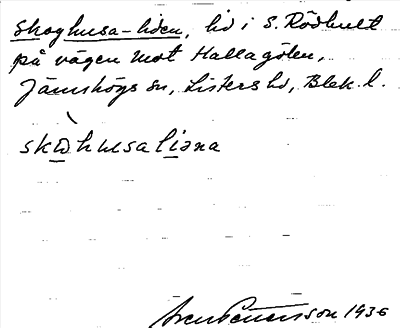 Skoghusa-liden, lid i S. Rödhult
på vägen mot Hallagölen,
Jämshögs sn, Listers hd, Blek. l.
skωhusaliəna
Sven Benson 1936